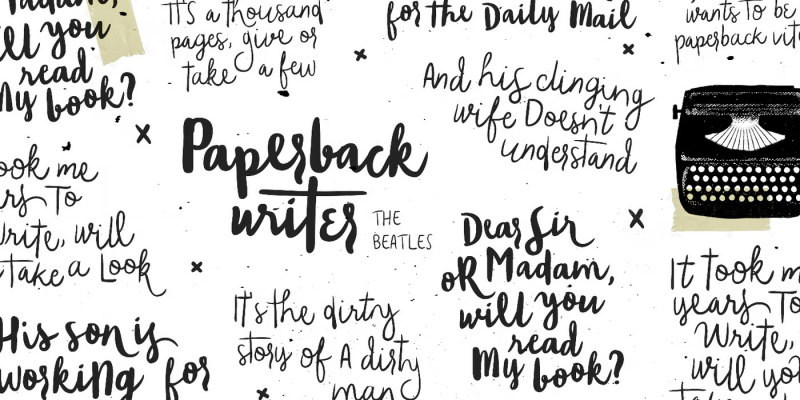 Madam,
ll you
read
My book?
It's a thousand
pages, give or
take a few
for the Daily Mail
wants to be
paperback
And his clinging
wife Doesn't
understand
Paperback
writer
THE
BEATLES
ook me
rs To
Write, will
Take a Look
Dear Sir
oR Madam,
will you
read
My book?
His son is
working for
It's the dirty
story of A dirty
man
It took m
years To
Write,
will yo